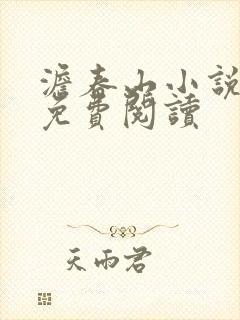 澹春山小說
免費閱讀
天雨君